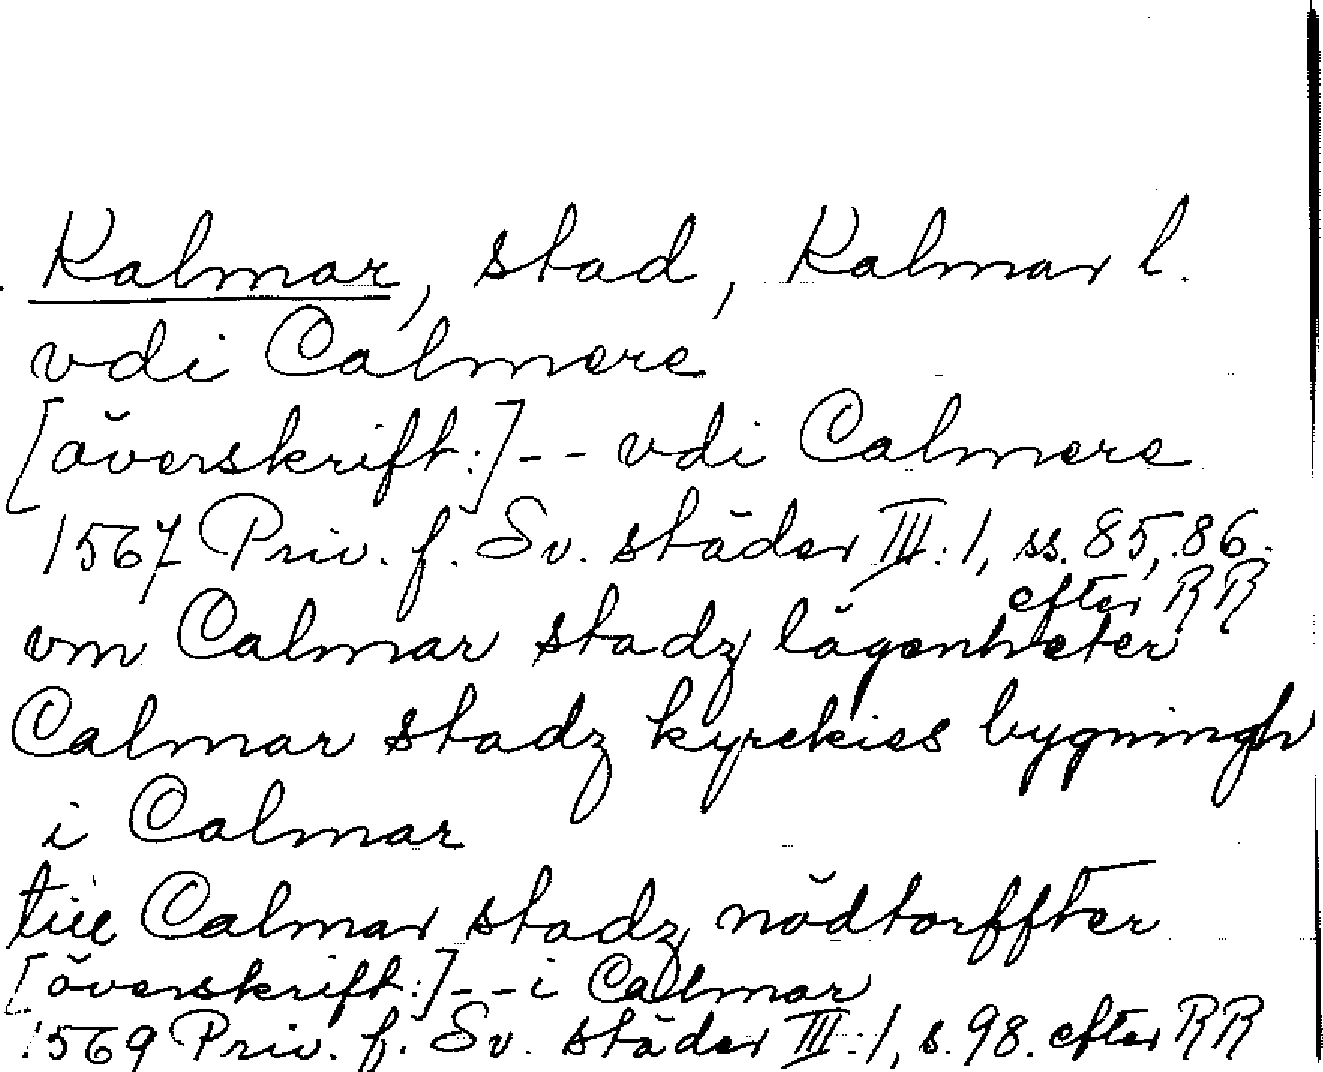 Kalmar, stad, Kalmar l.
vdi Calmere
[överskrift:]-- vdi Calmere
1567 Priv. f. Sv. städer III:1, ss. 85, 86.
efter RR
vm Calmar stadz lägenheter
Calmar stadz kyrckies bygningh
i Calmar
till Calmar stadz nödtorffter
[överskrift:]--i Calmar
1569 Priv. f. Sv. städer III:1, s. 98. efter RR